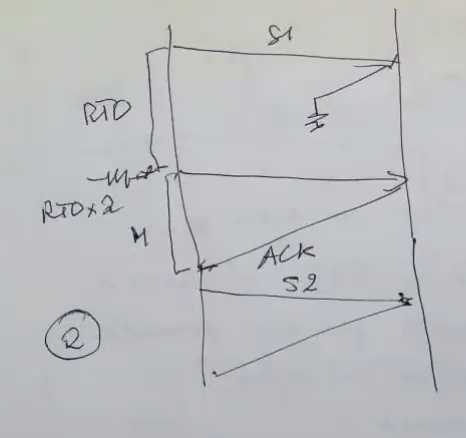 S1
RTO
RTO×2
M
ACK
S2
2